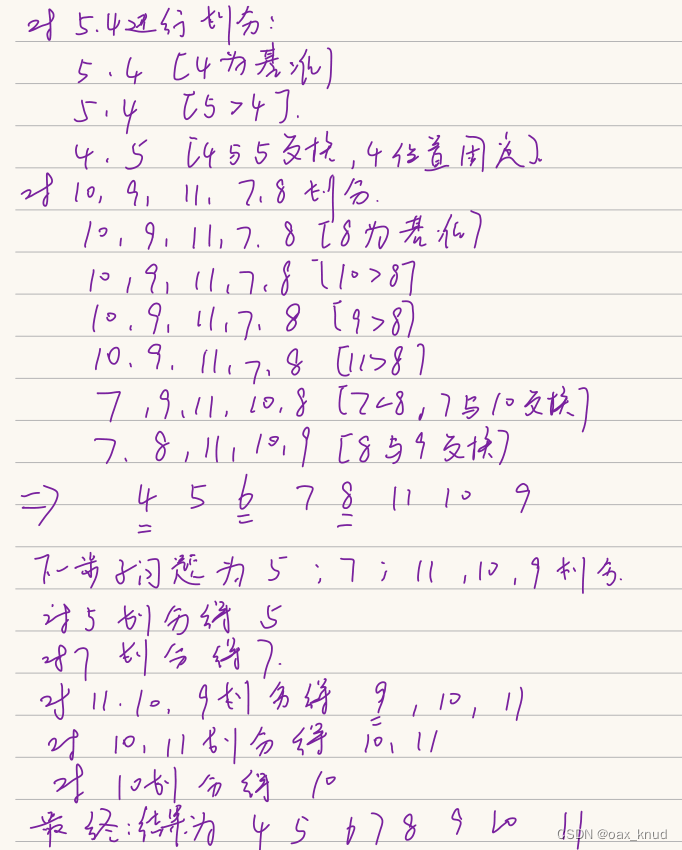 对 5.4进行划分:
5.4 [4为基准]
5.4 [5>4].
4.5 [4与5交换,4位置固定].
对 10, 9, 11, 7.8 划分.
10, 9, 11, 7. 8 [8为基准]
10, 9, 11, 7, 8 [10>8]
10, 9, 11, 7. 8 [9>8]
10. 9. 11, 7, 8 [11>8]
7, 9, 11, 10, 8 [7<8, 7与10交换]
7. 8, 11, 10, 9 [8与9交换]
=> 4 5 6 7 8 11 10 9
下一步子问题为 5 ; 7 ; 11, 10, 9 划分.
对5划分得 5
对7 划分得7.
对 11.10, 9划分得 9, 10, 11
对 10, 11 划分得 10, 11
对 10划分得 10
最终:结果为 4 5 6 7 8 9 10 11
CSDN @oax_knud